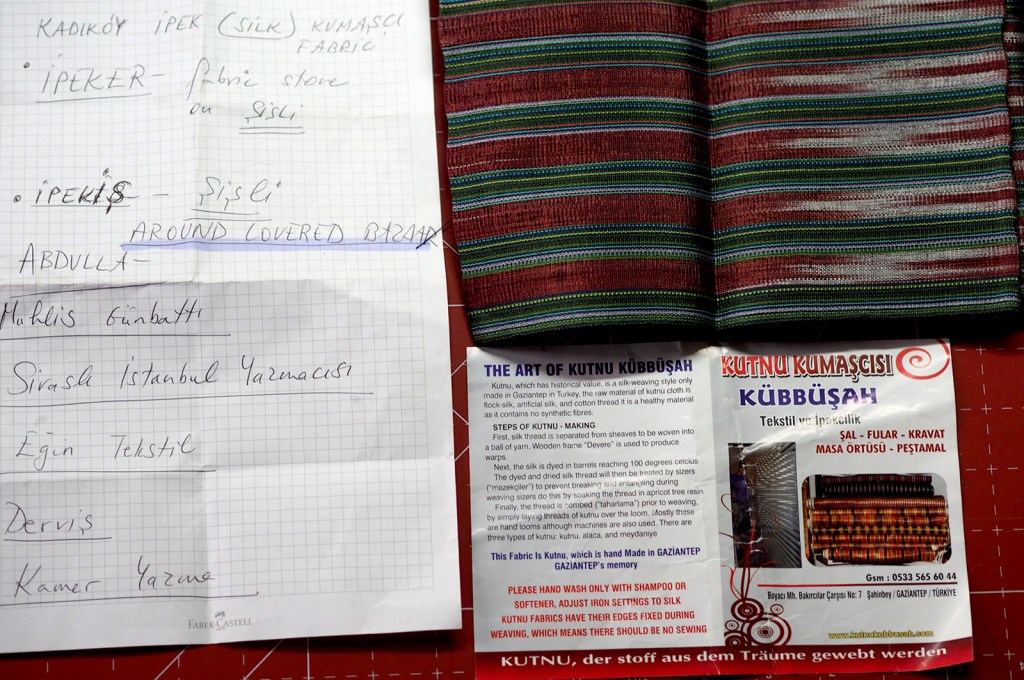 KADIKÖY İPEK (SILK) KUMAŞÇI
FABRIC
• İPEKER – fabric store
on Şişli
• İPEKİŞ – Şişli
AROUND COVERED BAZAAR
ABDULLA –
Muhlis Günbattı
Sivaslı İstanbul Yazmacısı
Eğin Tekstil
Derviş
Kamer Yazma
FABER-CASTELL
THE ART OF KUTNU KÜBBÜŞAH
Kutnu, which has historical value, is a silk-weaving style only
made in Gaziantep in Turkey, the raw material of kutnu cloth is
flock-silk, artificial silk, and cotton thread it is a healthy material
as it contains no synthetic fibres.
STEPS OF KUTNU - MAKING
First, silk thread is separated from sheaves to be woven into
a ball of yarn. Wooden frame "Devere" is used to produce
warps.
Next, the silk is dyed in barrels reaching 100 degrees celcius
The dyed and dried silk thread will then be treated by sizers
("mezekçiler") to prevent breaking and entangling during
weaving sizers do this by soaking the thread in apricot tree resin
Finally, the thread is combed ("taharlama") prior to weaving,
by simply laying threads of kutnu over the loom. Mostly these
are hand looms although machines are also used. There are
three types of kutnu: kutnu, alaca, and meydaniye
This Fabric Is Kutnu, which is hand Made in GAZİANTEP
GAZİANTEP's memory
PLEASE HAND WASH ONLY WITH SHAMPOO OR
SOFTENER, ADJUST IRON SETTINGS TO SILK
KUTNU FABRICS HAVE THEIR EDGES FIXED DURING
WEAVING, WHICH MEANS THERE SHOULD BE NO SEWING
KUTNU KUMAŞCISI
KÜBBÜŞAH
Tekstil ve İpekcilik
ŞAL - FULAR - KRAVAT
MASA ÖRTÜSÜ - PEŞTAMAL
Gsm : 0533 565 60 44
Boyacı Mh. Bakırcılar Çarşısı No: 7 Şahinbey / GAZİANTEP / TÜRKİYE
www.kutnukubbusah.com
KUTNU, der stoff aus dem Träume gewebt werden